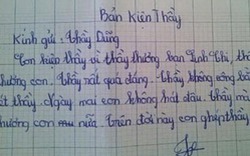 Bản Kiện Thầy
Kính gửi: Thầy Dũng
Con kiện thầy vì thầy thương bạn Linh Chi, th
hương con. Thầy rất quá đáng. Thầy không công b
ết thầy. Ngày mai con không hát đâu. Thầy mà
hương con nữa. Trên đời này con ghép thầy